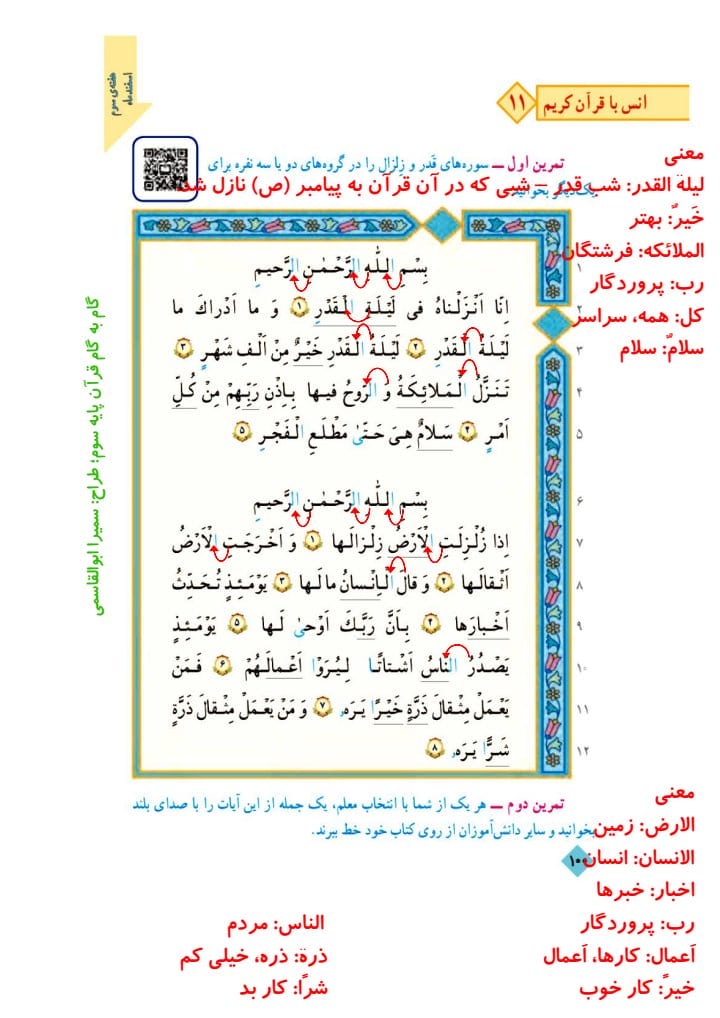 هفته‌ی سوم
اسفندماه
انس با قرآن کریم ۱۱
تمرین اول ــ سوره‌های قَدر و زِلزال را در گروه‌های دو یا سه نفره برای
یک‌دیگر بخوانید.
معنی
لیلة القدر: شب قدر – شبی که در آن قرآن به پیامبر (ص) نازل شد
خَیرٌ: بهتر
الملائکه: فرشتگان
رب: پروردگار
کل: همه، سراسر
سلامٌ: سلام
بِسْمِ اللّٰهِ الرَّحْمٰنِ الرَّحیمِ ۱
اِنّا اَنْزَلْناهُ فی لَیْلَةِ الْقَدْرِ ۱ وَ ما اَدْراكَ ما ۲
لَیْلَةُ الْقَدْرِ ۲ لَیْلَةُ الْقَدْرِ خَیْرٌ مِنْ اَلْفِ شَهْرٍ ۳ ۳
تَنَزَّلُ الْمَلائِكَةُ وَ الرّوحُ فیها بِاِذْنِ رَبِّهِمْ مِنْ كُلِّ ۴
اَمْرٍ ۴ سَلامٌ هِیَ حَتّیٰ مَطْلَعِ الْفَجْرِ ۵ ۵
بِسْمِ اللّٰهِ الرَّحْمٰنِ الرَّحیمِ ۶
اِذا زُلْزِلَتِ الْاَرْضُ زِلْزالَها ۱ وَ اَخْرَجَتِ الْاَرْضُ ۷
اَثْقالَها ۲ وَ قالَ الْاِنْسانُ ما لَها ۳ یَوْمَئِذٍ تُحَدِّثُ ۸
اَخْبارَها ۴ بِاَنَّ رَبَّكَ اَوْحیٰ لَها ۵ یَوْمَئِذٍ ۹
یَصْدُرُ النّاسُ اَشْتاتًا لِیُرَوْا اَعْمالَهُمْ ۶ فَمَنْ ۱۰
یَعْمَلْ مِثْقالَ ذَرَّةٍ خَیْرًا یَرَهُ ۷ وَ مَنْ یَعْمَلْ مِثْقالَ ذَرَّةٍ ۱۱
شَرًّا یَرَهُ ۸ ۱۲
گام به گام قرآن پایه سوم؛ طراح: سمیرا ابوالقاسمی
تمرین دوم ــ هر یک از شما با انتخاب معلم، یک جمله از این آیات را با صدای بلند
بخوانید و سایر دانش‌آموزان از روی کتاب خود خط ببرند.
۱۰۰
معنی
الارض: زمین
الانسان: انسان
اخبار: خبرها
رب: پروردگار
اَعمال: کارها، اَعمال
خیرً: کار خوب
الناس: مردم
ذرة: ذره، خیلی کم
شرًا: کار بد